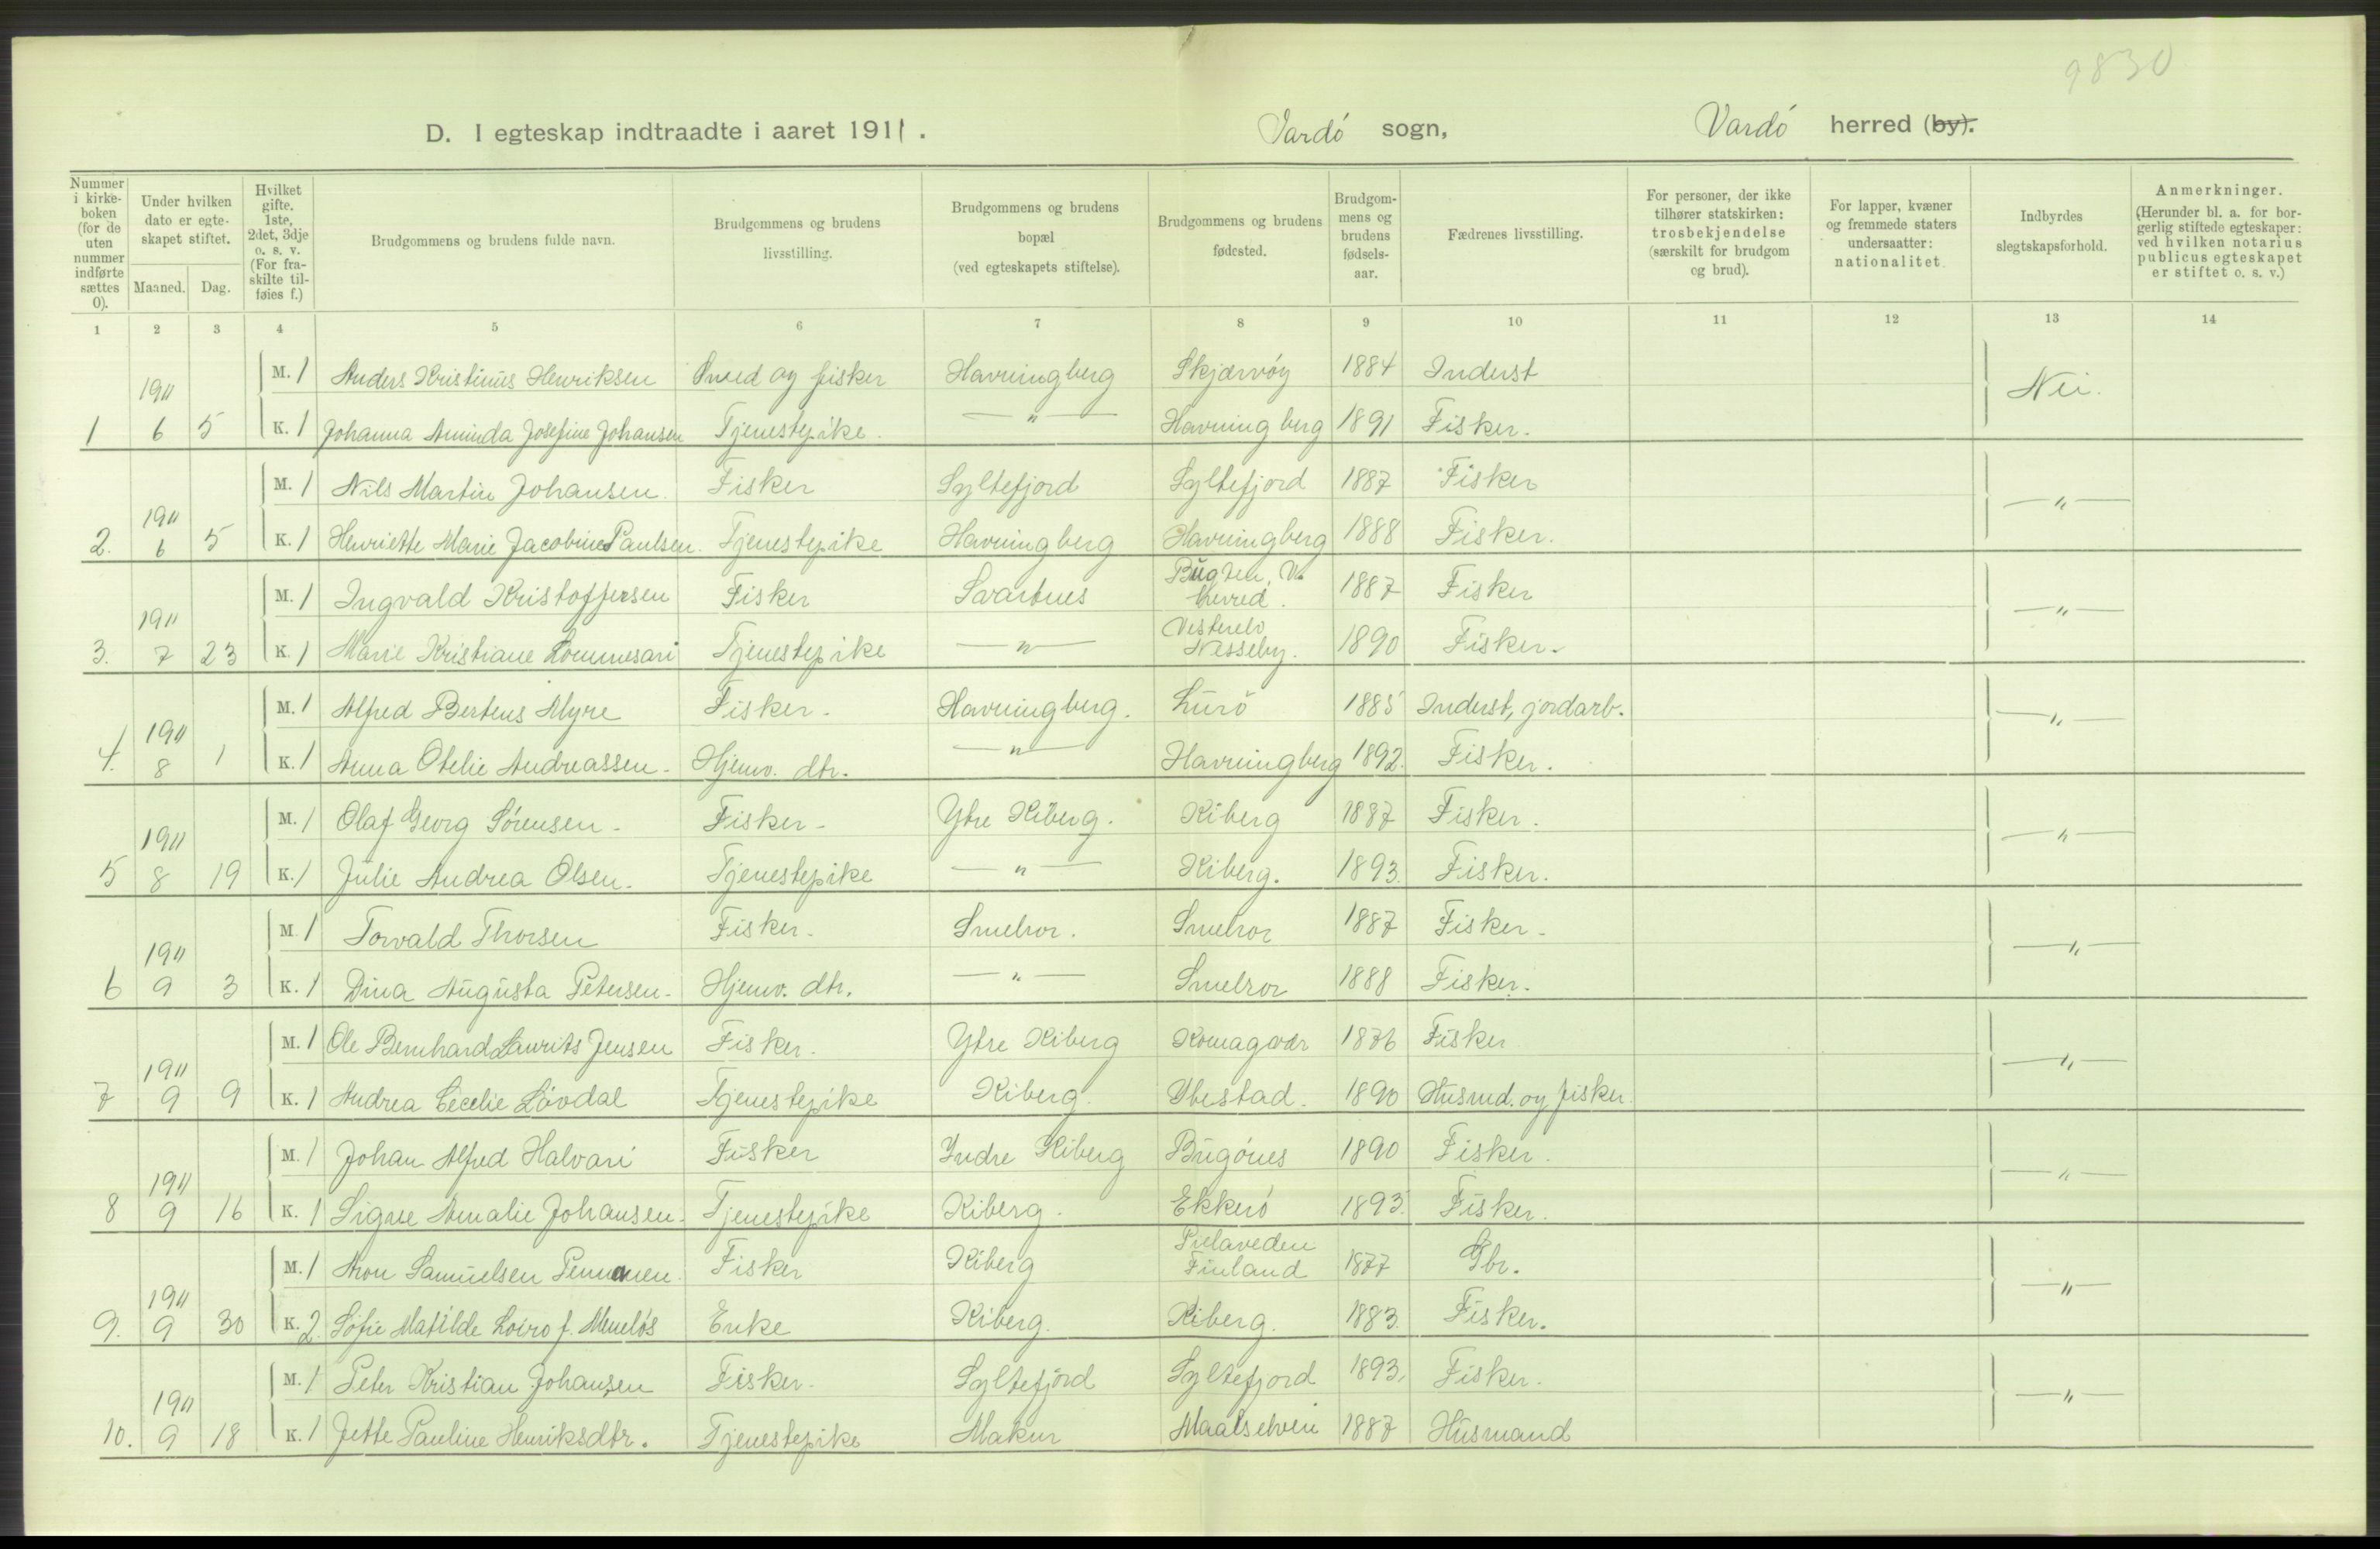 9830
D. I egteskap indtraadte i aaret 1911. Vardö sogn, Vardö herred (by).
Nummer i kirkeboken (for de uten nummer indførte sættes 0). Under hvilken dato er egteskapet stiftet. Maaned. Dag. Hvilket gifte. 1ste, 2det, 3dje o. s. v. (For fraskilte tilføies f.) Brudgommens og brudens fulde navn. Brudgommens og brudens livsstilling. Brudgommens og brudens bopæl (ved egteskapets stiftelse). Brudgommens og brudens fødested. Brudgommens og brudens fødselsaar. Fædrenes livsstilling. For personer, der ikke tilhører statskirken: trosbekjendelse (særskilt for brudgom og brud). For lapper, kvæner og fremmede staters undersaatter: nationalitet. Indbyrdes slegtskapsforhold. Anmerkninger. (Herunder bl. a. for borgerlig stiftede egteskaper: ved hvilken notarius publicus egteskapet er stiftet o. s. v.)
1 2 3 4 5 6 7 8 9 10 11 12 13 14
1911 M. 1 Anders Kristinus Henriksen Smed og fisker Havningberg Skjærvöy 1884 Inderst Nei.
1 6 5 K. 1 Johanna Aminda Josefine Johansen Tjenestepike. — " — Havningberg 1891 Fisker.
1911 M. 1 Nils Martin Johansen. Fisker Syltefjord Syltefjord 1887 Fisker — " —
2. 6 5 K. 1 Henriette Marie Jacobine Paulsen. Tjenestepike Havningberg Havningberg 1888 Fisker.
1911 M. 1 Ingvald Kristoffersen Fisker Svartnes Bugten, V. herred. 1887 Fisker — " —
3. 7 23 K. 1 Marie Kristiane Lommesari Tjenestepike — " — Vesterelv Nesseby. 1890 Fisker.
1911 M. 1 Alfred Berteus Myre Fisker. Havningberg. Lurö 1885 Inderst, jordarb. — " —
4. 8 1 K. 1 Anna Otelie Andreassen. Hjemv. dtr. — " — Havningberg 1892. Fisker.
1911 M. 1 Olaf Georg Sörensen. Fisker. Ytre Kiberg. Kiberg 1887 Fisker. — " —
5 8 19 K. 1 Julie Andrea Olsen. Tjenestepike — " — Kiberg. 1893. Fisker.
1911 M. 1 Torvald Thorsen Fisker. Smelror. Smelror 1887 Fisker. — " —
6 9 3 K. 1 Dina Augusta Petersen. Hjemv. dtr. — " — Smelror 1888 Fisker.
1911 M. 1 Ole Bernhard Laurits Jensen Fisker. Ytre Kiberg Komagvær 1876 Fisker — " —
7 9 9 K. 1 Andrea Cecelie Lövdal Tjenestepike Kiberg. Ibestad. 1890 Husmd. og fisker.
1911 M. 1 Johan Alfred Halvari Fisker Indre Kiberg Bugönes 1890 Fisker. — " —
8 9 16 K. 1 Signe Amalie Johansen. Tjenestepike Kiberg. Ekkerö 1893. Fisker.
1911 M. 1 Aron Samuelsen Pennanen. Fisker Kiberg Pielaveden Finland 1877 Gbr. — " —
9. 9 30 K. 2. Sofie Matilde Loiro f. Menelös Enke Kiberg. Kiberg. 1883. Fisker.
1911 M. 1 Peter Kristian Johansen Fisker. Syltefjord Syltefjord 1893. Fisker. — " —
10. 9 18 K. 1 Jette Pauline Henriksdtr. Tjenestepike Makur Maalselven 1887 Husmand